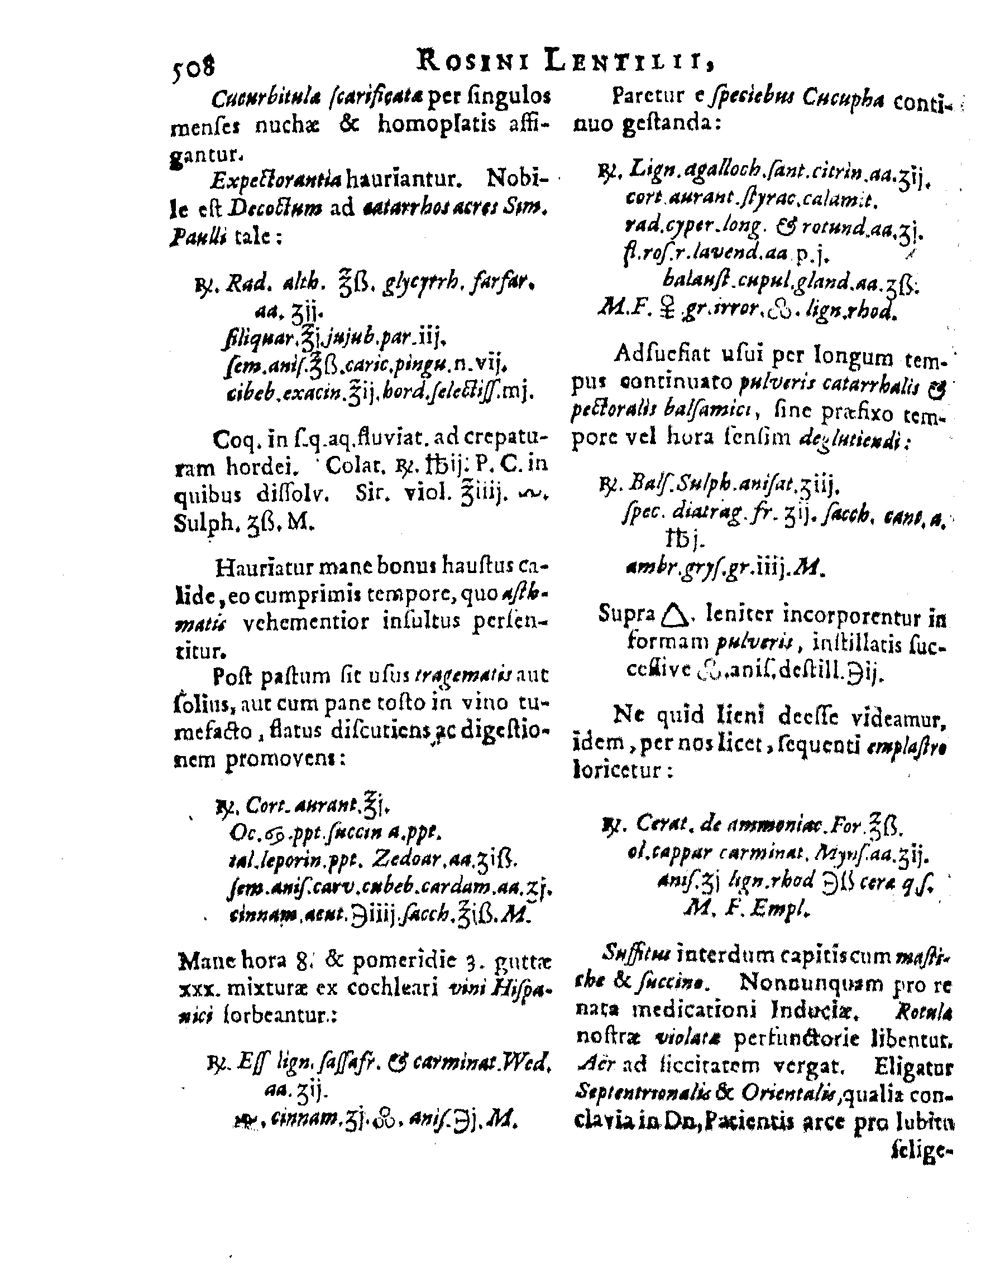 508
ROSINI LENTILII,
Cucurbitulæ ſcarificatæ per ſingulos
menſes nuchæ & homoplatis affi-
gantur.
Expectorantia hauriantur. Nobi-
le eſt Decoctum ad catarrhos acres Sim.
Paulli tale:
℞. Rad. alth. ℥ß. glycyrrh. farfar.
aa. ʒij.
ſiliquar.℥j.jujub.par.iij.
ſem.aniſ.℥ß.caric.pingu.n.vij.
cibeb.exacin.℥ij.hord.ſelectiſſ.mj.
Coq. in ſ.q.aq.fluviat. ad crepatu-
ram hordei. Colat. ℞. ℔ij. P. C. in
quibus diſſolv. Sir. viol. ℥iiij.
Sulph. ʒß. M.
Hauriatur mane bonus hauſtus ca-
lide, eo cumprimis tempore, quo aſth-
matis vehementior inſultus perſen-
titur.
Poſt paſtum ſit uſus tragematis aut
ſolius, aut cum pane toſto in vino tu-
mefacto, flatus diſcutiens ac digeſtio-
nem promovens:
℞. Cort. aurant.℥j.
Oc.♋.ppt.ſuccin a.ppt.
tal.leporin.ppt. Zedoar.aa.ʒiß.
ſem.aniſ.carv.cubeb.cardam.aa.ʒj.
cinnam.acut.℈iiij.ſacch.℥iß.M.
Mane hora 8. & pomeridie 3. guttæ
xxx. mixturæ ex cochleari vini Hiſpa-
nici ſorbeantur.:
℞. Eſſ lign. ſaſſafr. & carminat.Wed.
aa.ʒij.
cinnam.ʒj. aniſ.℈j.M.
Paretur e ſpeciebus Cucupha conti-
nuo geſtanda:
℞. Lign.agalloch.ſant.citrin.aa.ʒij.
cort.aurant.ſtyrac.calamit.
rad.cyper.long. & rotund.aa.ʒj.
fl.roſ.r.lavend.aa p.j.
balauſt.cupul.gland.aa.ʒß.
M.F. ♀.gr.irror. lign.rhod.
Adſueſiat uſui per longum tem-
pus continuato pulveris catarrhalis &
pectoralis balſamici, ſine præfixo tem-
pore vel hora ſenſim deglutiendi:
℞. Balſ.Sulph.aniſat.ʒiij.
ſpec. diatrag.fr. ʒij. ſacch. cant. a.
℔j.
ambr.gryſ.gr.iiij.M.
Supra △. leniter incorporentur in
formam pulveris, inſtillatis ſuc-
ceſſive aniſ.deſtill.℈ij.
Ne quid lieni deeſſe videamur,
idem, per nos licet, ſequenti emplaſtro
loricetur:
℞. Cerat. de ammoniac.For.℥ß.
ol.cappar carminat. Mynſ.aa.ʒij.
aniſ.ʒj lign.rhod ℈ß cera q.ſ.
M. F. Empl.
Suffitus interdum capitis cum maſti-
che & ſuccino. Nonnunquam pro re
nata medicationi Induciæ. Rotulæ
noſtræ violatæ perfunctorie libentur.
Aër ad ſiccitatem vergat. Eligatur
Septentrionalis & Orientalis, qualia con-
clavia in Dn. Patientis arce pro lubitu
ſelige-